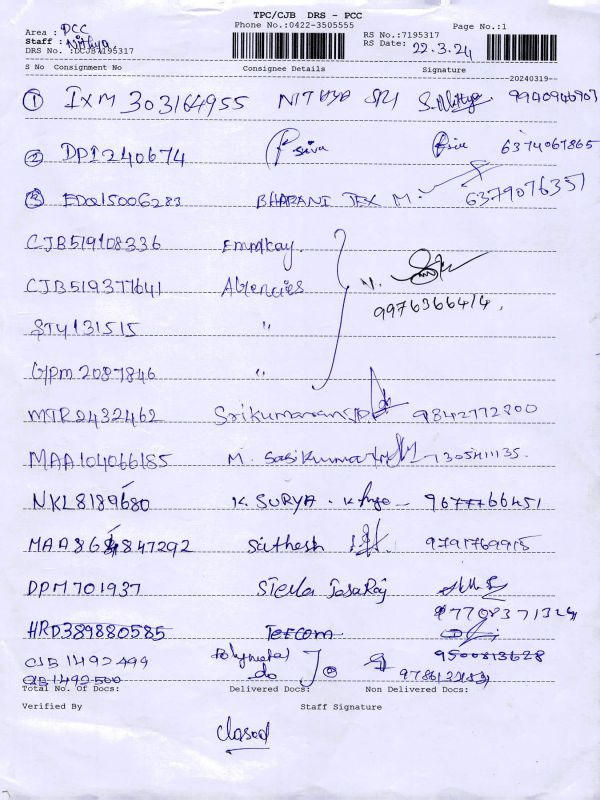 TPC/CJB DRS - PCC
Phone No.:0422-3505555
Page No.:1
Area : PCC
Staff : Nithya
DRS No. :DCJB7195317
RS No.:7195317
RS Date: 22.3.24
S No Consignment No Consignee Details Signature
20240319
1 IXM 303164955 NITHYA S. Nithya 9940946903
2 DPI 240674 Siva Siva 6374067865
3 EDQ15006283 BHARANI TEX M. 6379076357
CJB519108336 Emmkay
CJB519377641 Agencies 9976366414.
STY131515 "
GPM 2087846 "
MTR2432462 Srikumaran 9842772200
MAA104066185 M. Sasikumar 7305411135.
NKL8189680 K. SURYA 9677766451
MAA864847292 Sathesh 9791769915
DPM701937 Stella
97708371324
HRD389880585 Telecom
CJB1492499 Polymetal 9500813628
CJB1492500 do
Total No. Of Docs: Delivered Docs: Non Delivered Docs:
Verified By Staff Signature
Closed